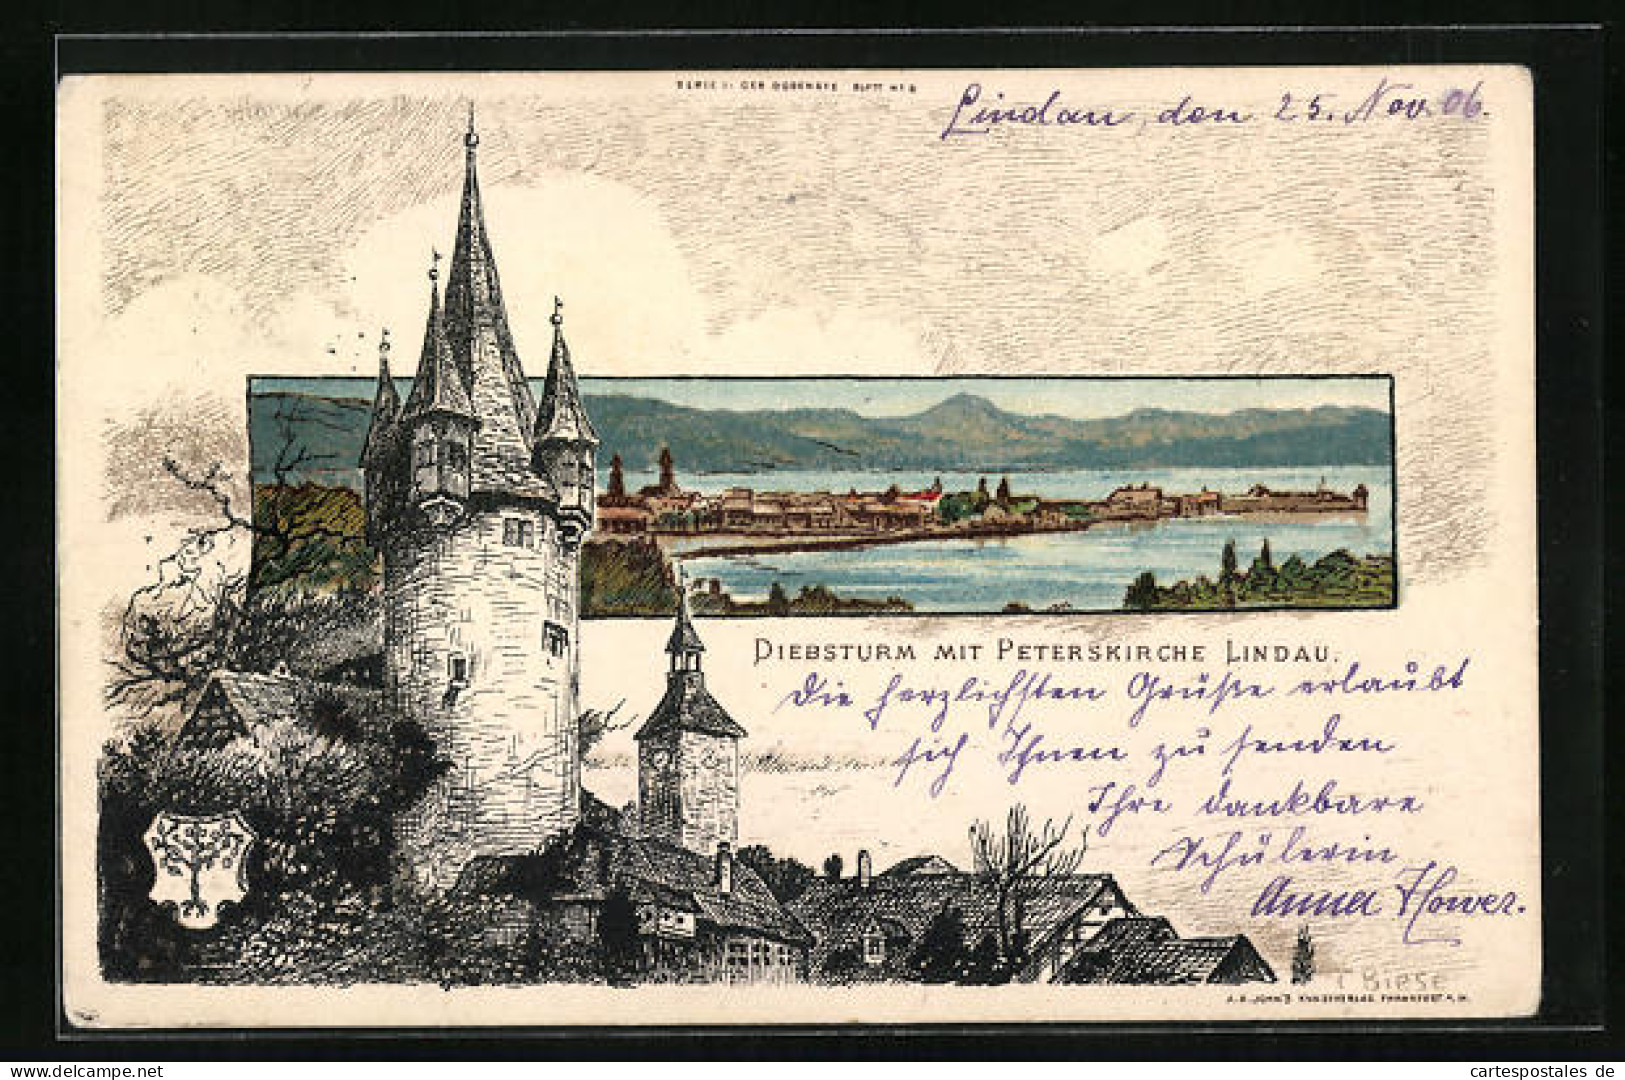 SERIE II. DER BODENSEE BLATT No 8
Lindau, den 25. Nov. 06.
DIEBSTURM MIT PETERSKIRCHE LINDAU.
Die herzlichsten Grüße erlaubt
sich Ihnen zu senden
Ihre dankbare
Schülerin
Anna
KUNSTVERLAG, FRANKFURT A. M.
cartespostales de